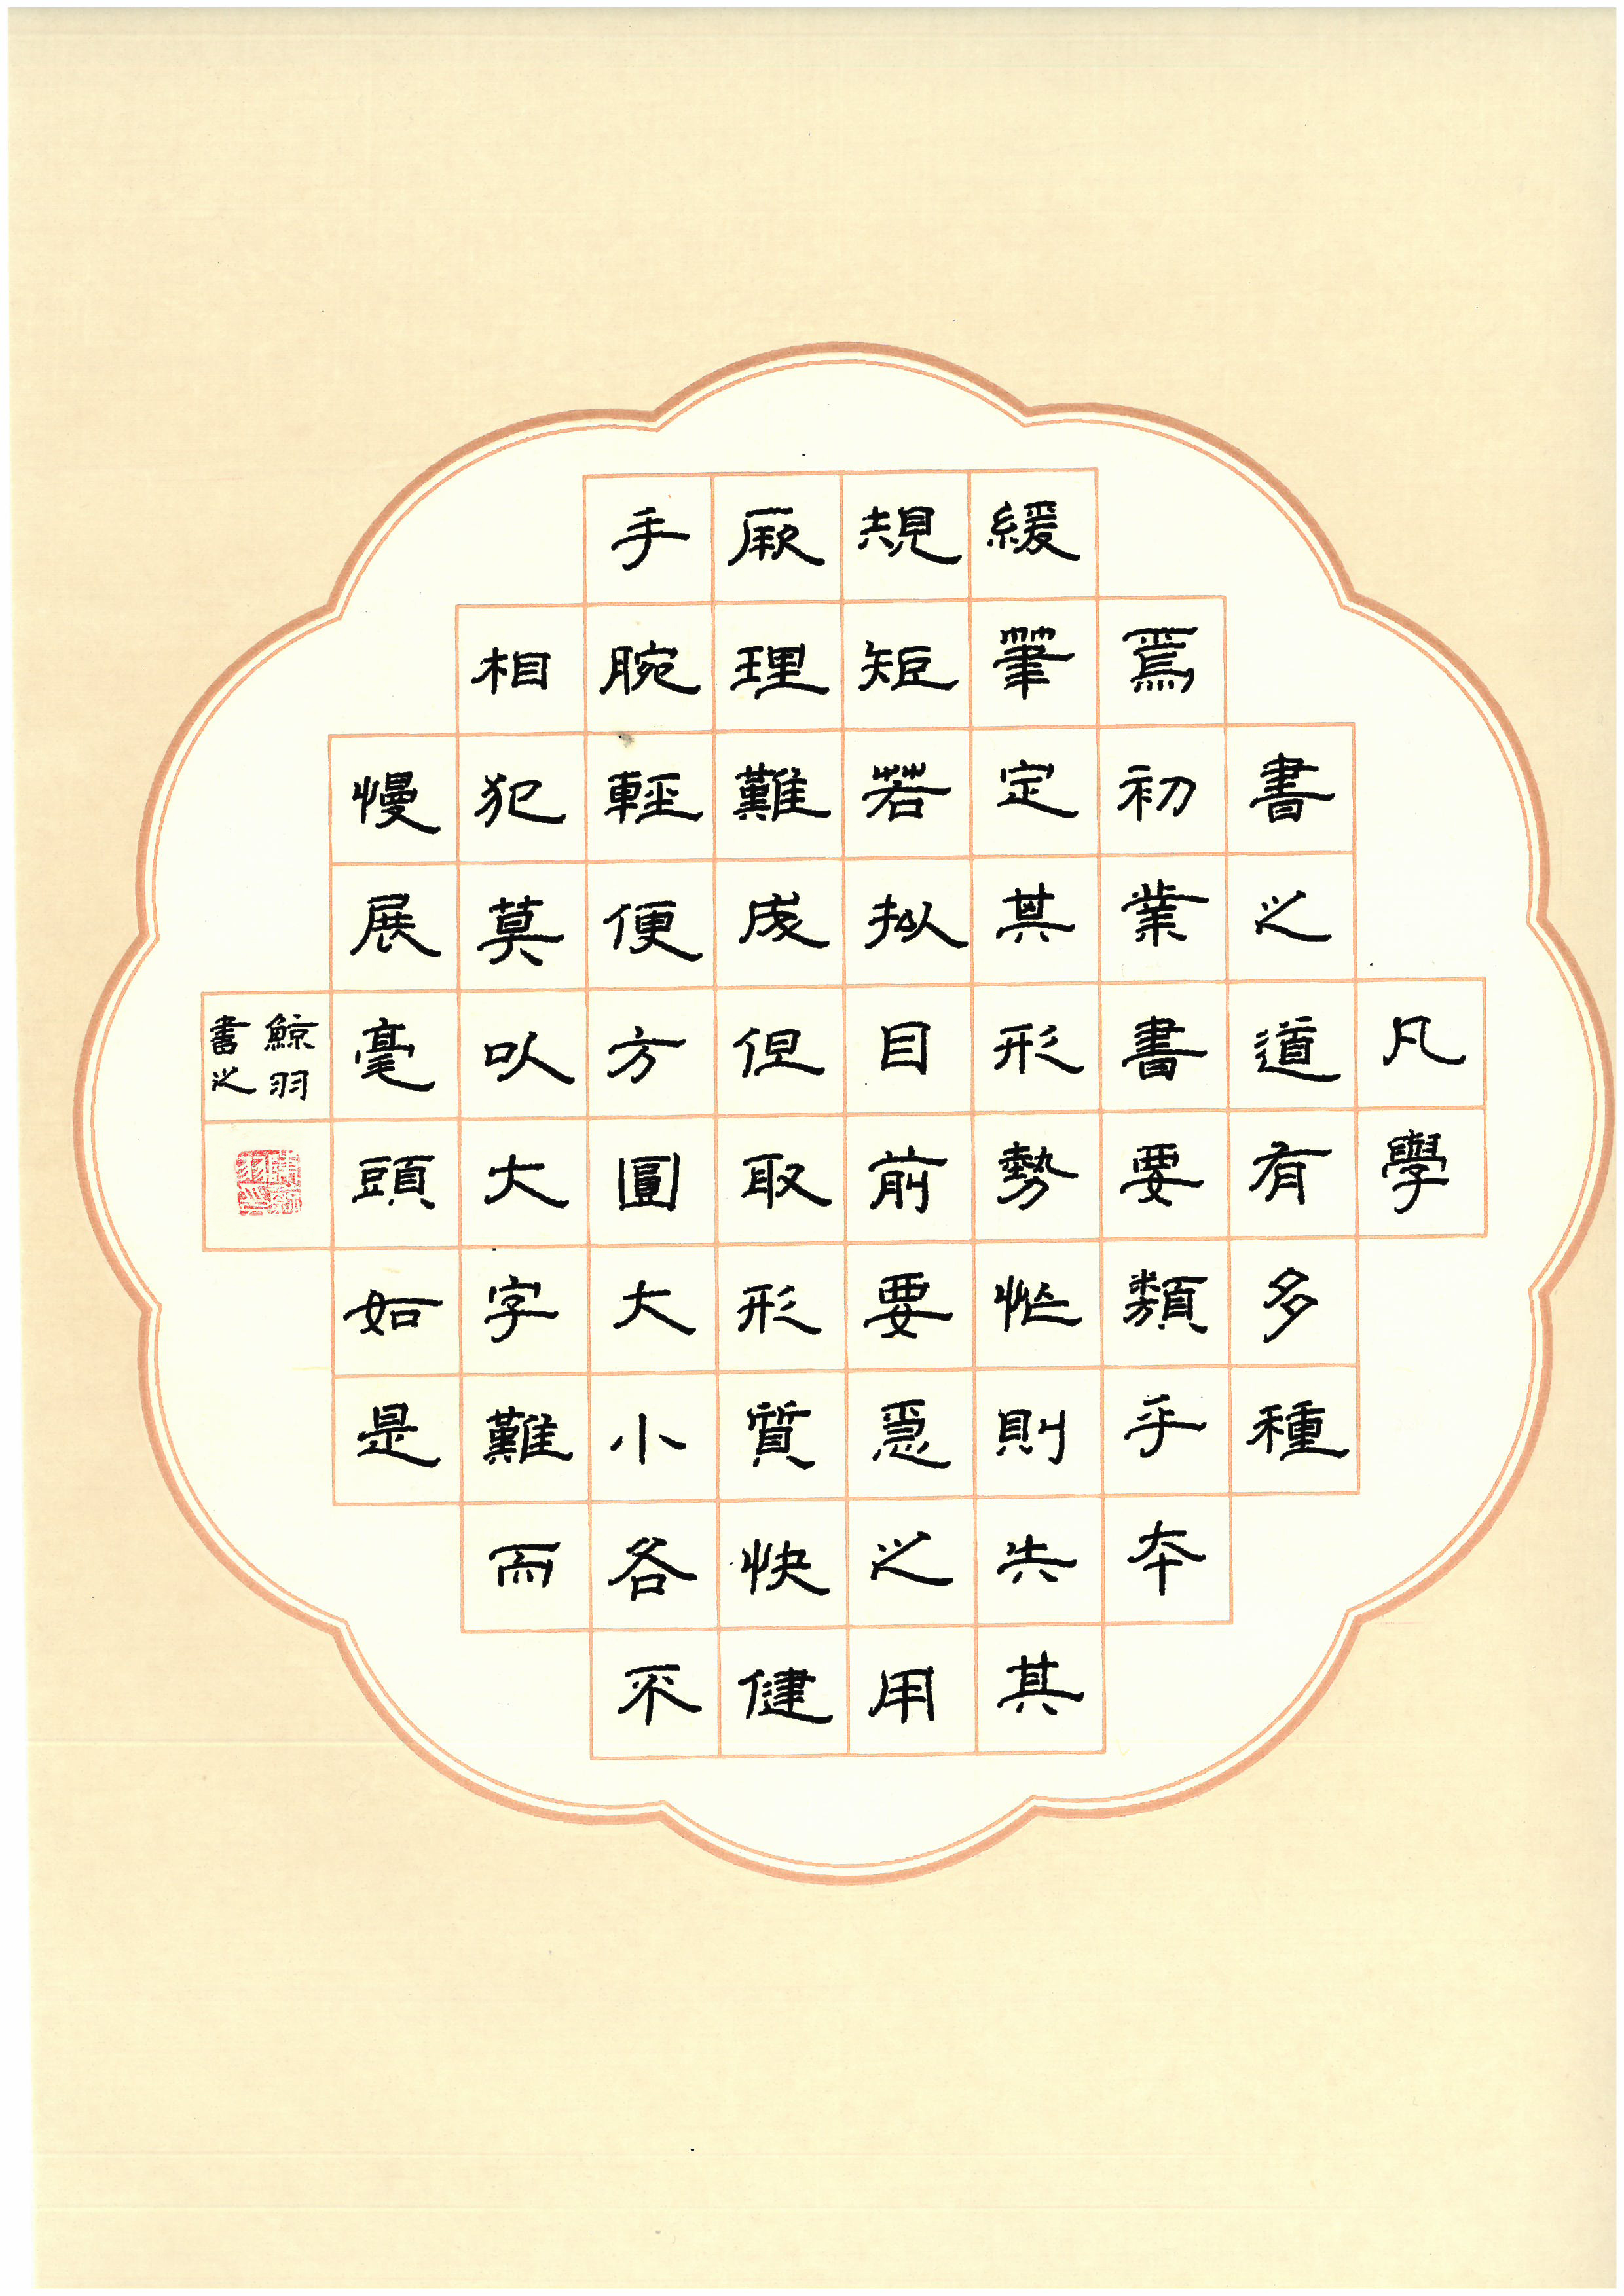 凡學
書之道有多種
焉初業書要類乎本
緩筆定其形勢忙則失其
規矩若擬目前要急之用
厥理難成但取形質快健
手腕輕便方圓大小各不
相犯莫以大字難而
慢展毫頭如是
鯨羽
書之